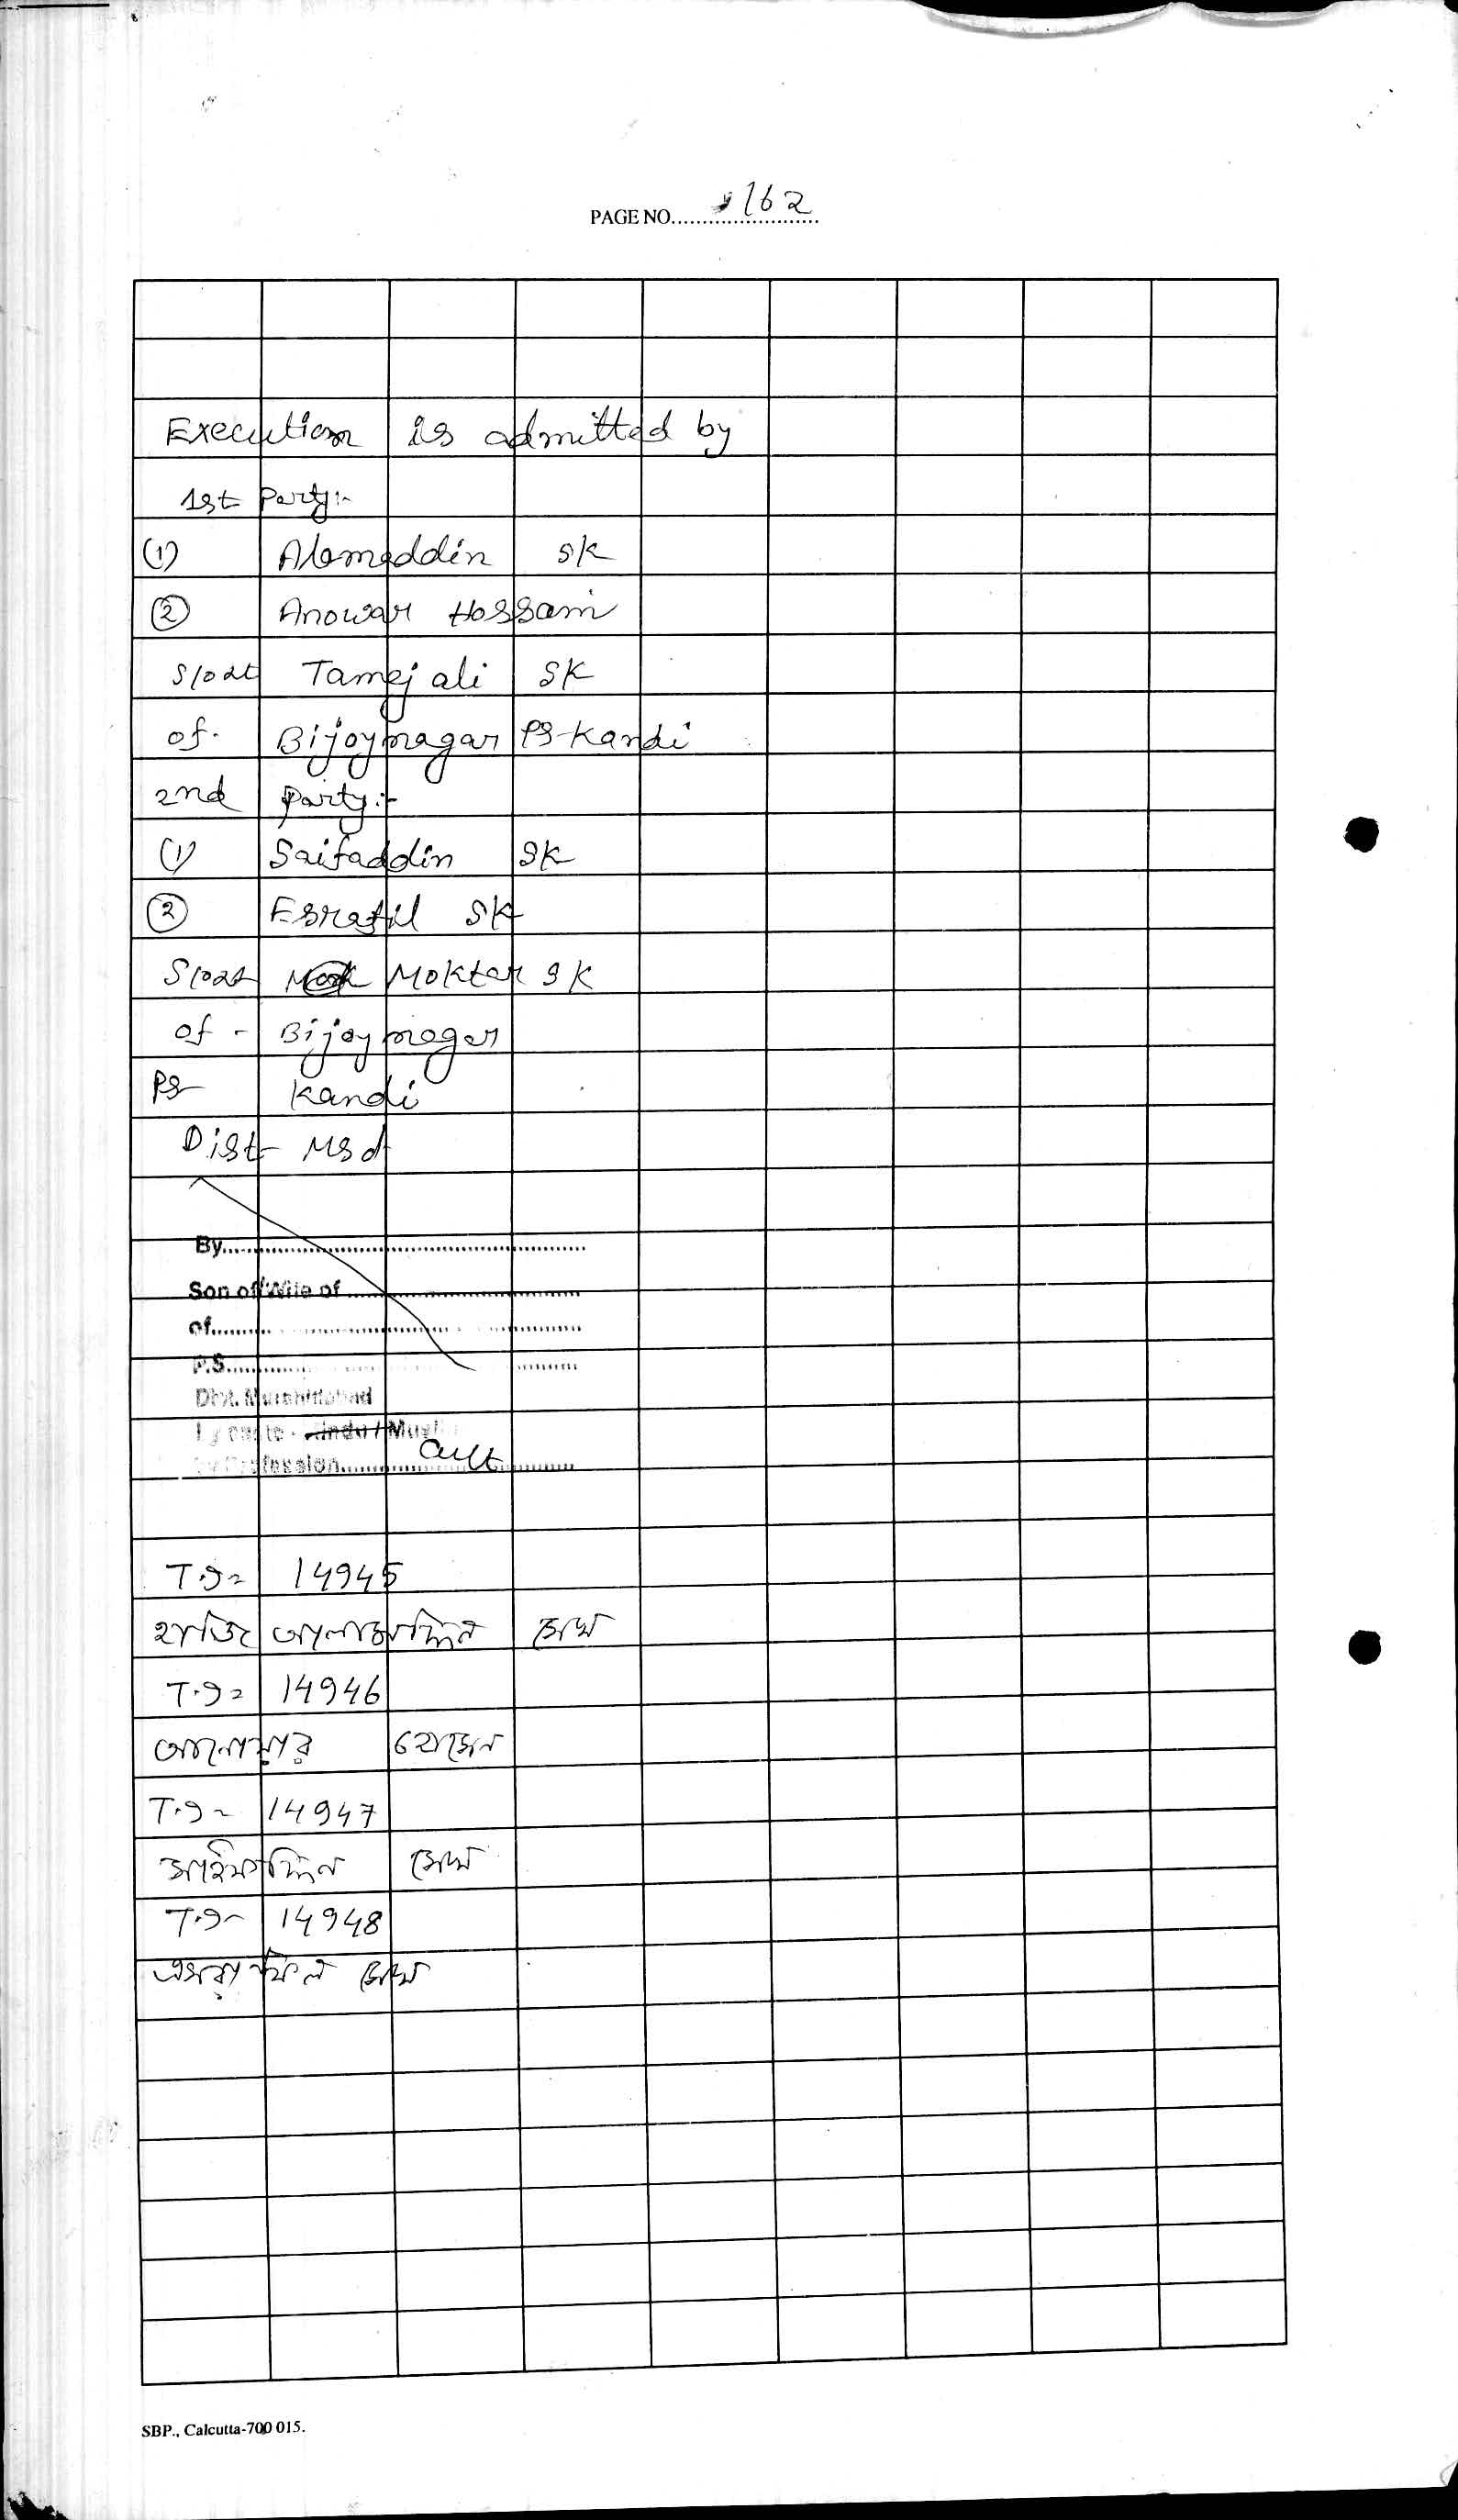 PAGE NO. 162
Execution is admitted by
1st Party:-
(1) Alameddin SK
(2) Anowar Hossain
S/o Lt Tamej ali SK
of. Bijoynagar PS-Kandi
2nd party:-
(1) Saifaddin SK
(2) Esrafil SK
S/o Lt Moktar SK
of - Bijoynagar
PS Kandi
Dist- Msd
By..........
Son of/Wife of..........
of..........
P.S..........
Dist. Murshidabad
by caste - Hindu / Musli
by Profession.......... Cult
T.I- 14945
হাজি আলামেদ্দিন সেখ
T.I- 14946
আনোয়ার হোসেন
T.I- 14947
সাইফাদ্দিন সেখ
T.I- 14948
এসরাফিল সেখ
SBP., Calcutta-700 015.